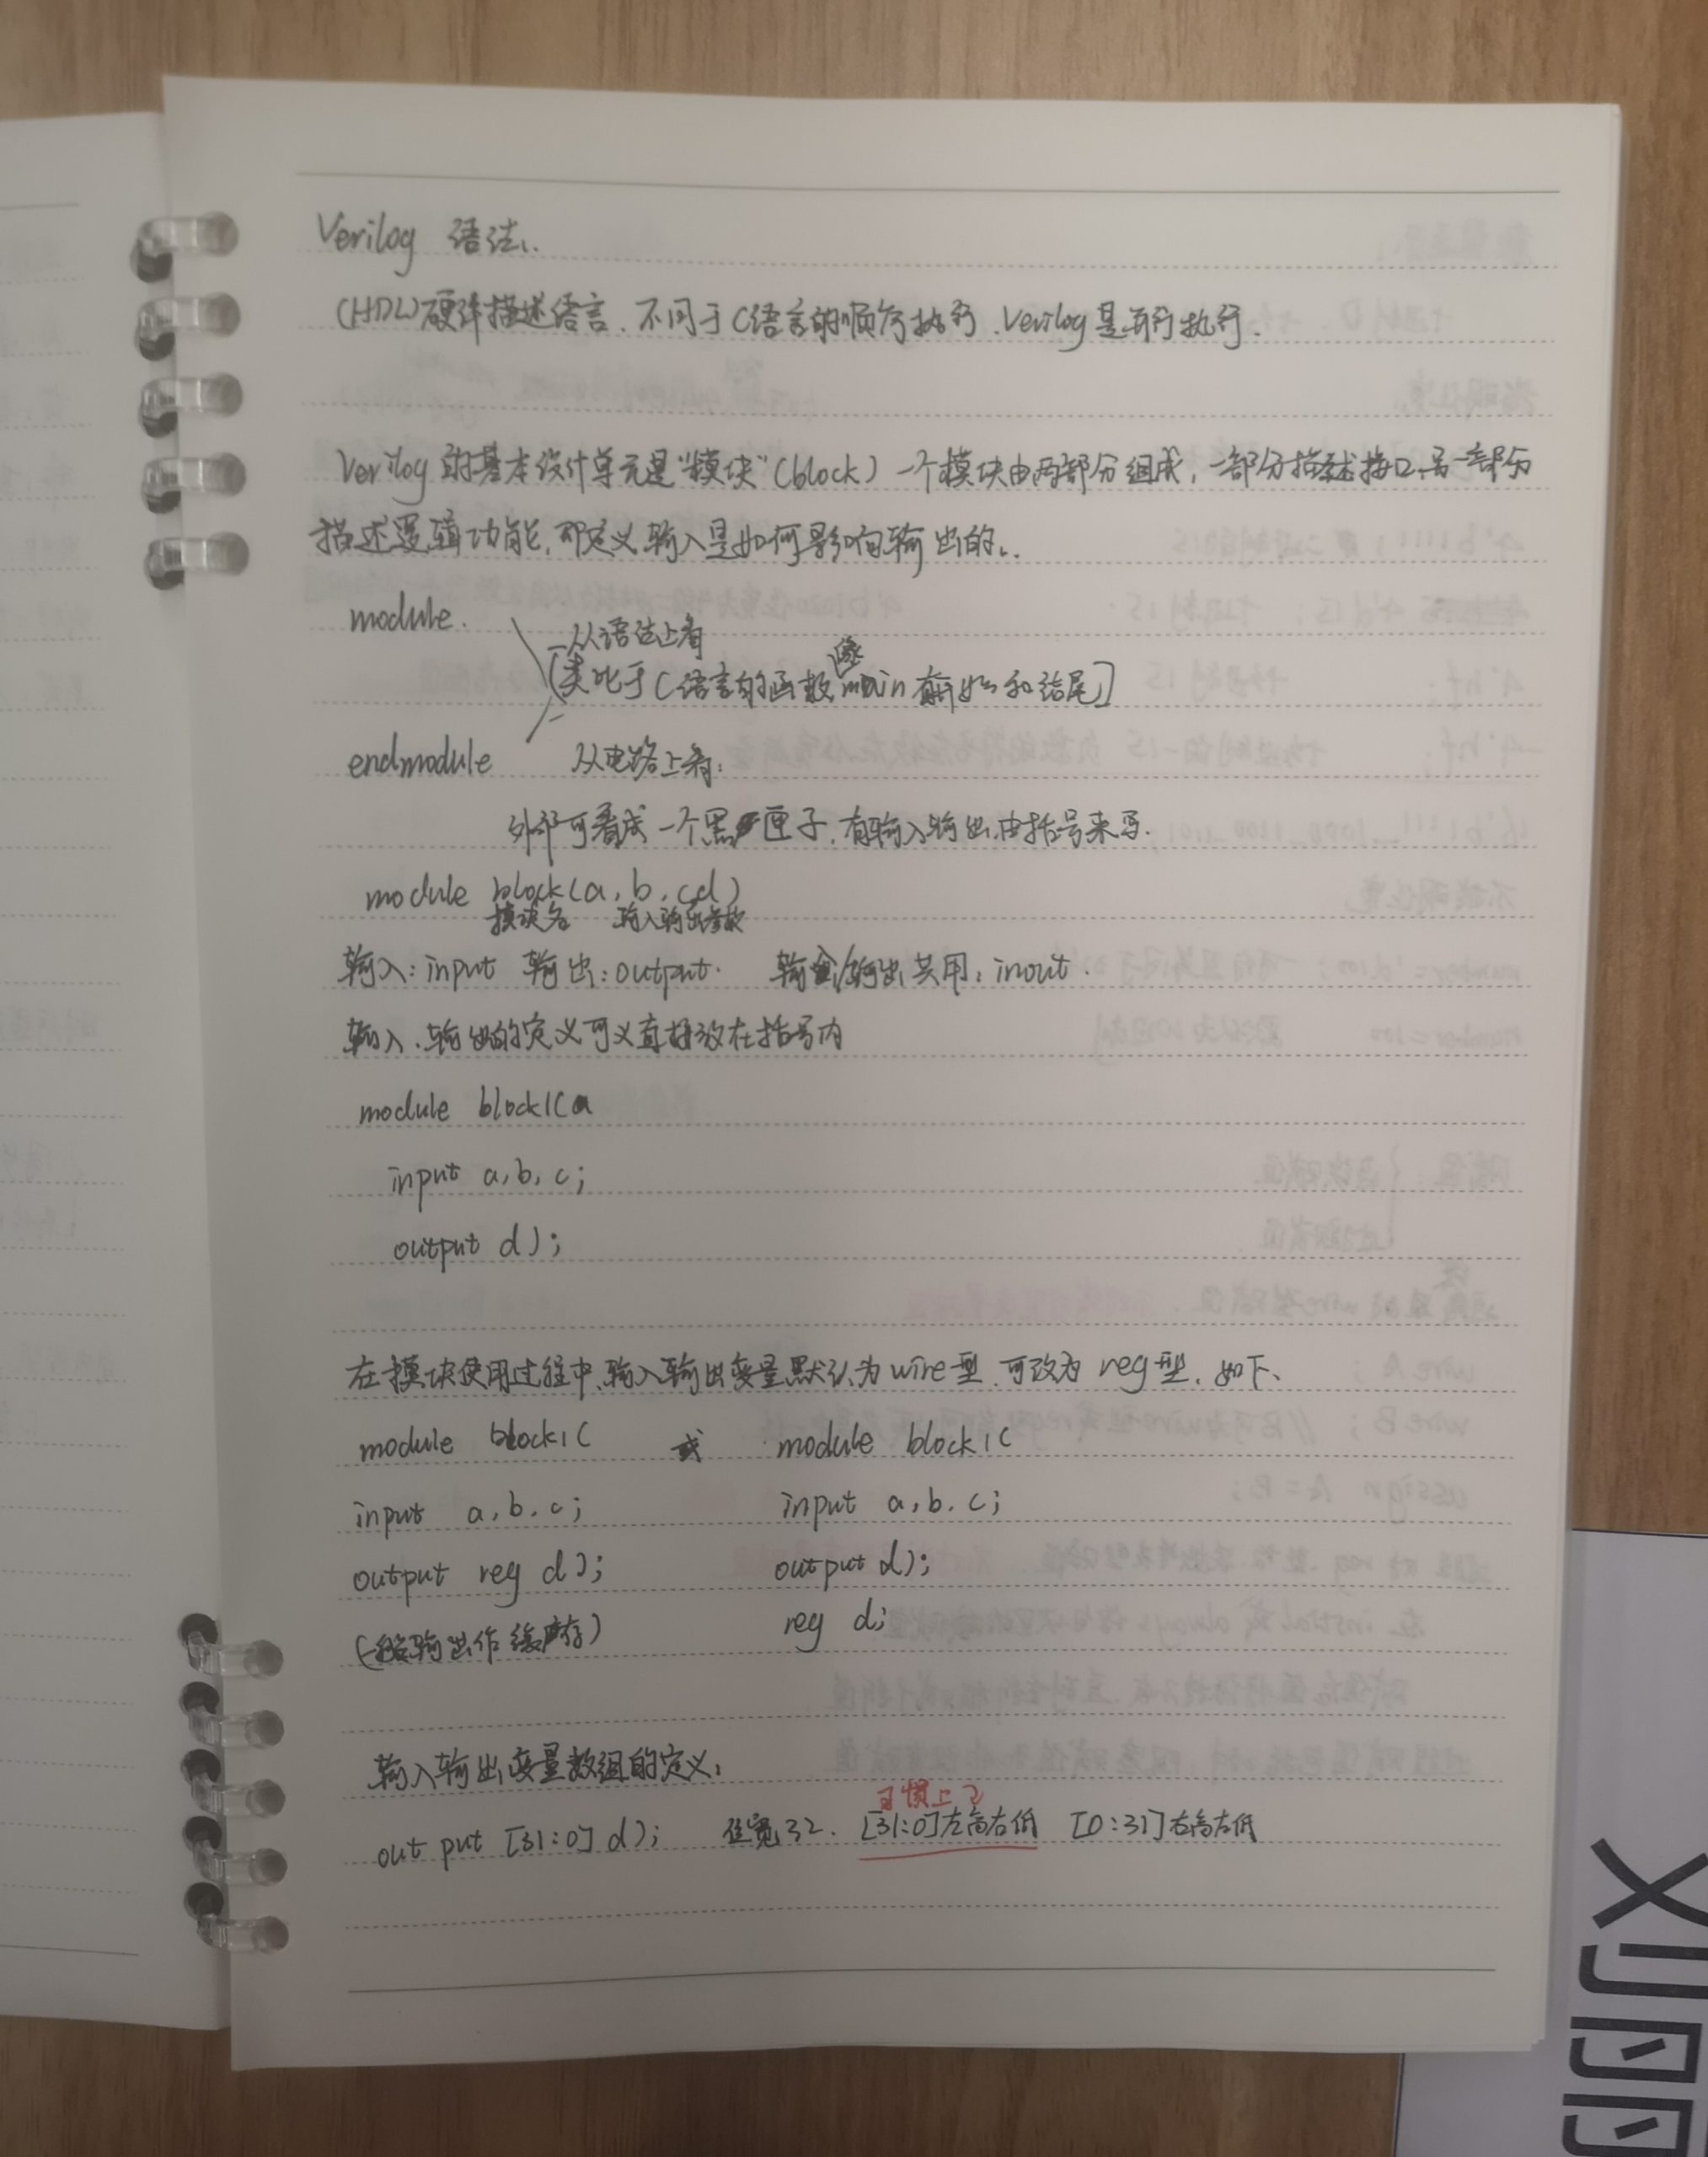 Verilog 语法:
(HDL)硬件描述语言、不同于C语言的顺序执行、Verilog是并行执行.
Verilog的基本设计单元是“模块”(block) 一个模块由两部分组成,一部分描述接口,另一部分
描述逻辑功能,即定义输入是如何影响输出的.
module.
从语法上看
[类比于C语言的函数像main有开始和结尾]
endmodule 从电路上看:
外部可看成一个黑匣子,有输入输出,由括号来写.
module block(a, b, c,d)
模块名 输入输出参数
输入:input 输出:output. 输入/输出共用:inout.
输入、输出的定义可义直接放在括号内
module block1(a
input a, b, c;
output d);
在模块使用过程中,输入输出变量默认为wire型,可改为reg型,如下、
module block1( 或 module block1(
input a, b, c; input a, b, c;
output reg d); output d);
(给输出作缓存) reg d;
输入输出变量数组的定义:
习惯上
output [31:0] d); 位宽32. [31:0]左高右低 [0:31]右高左低